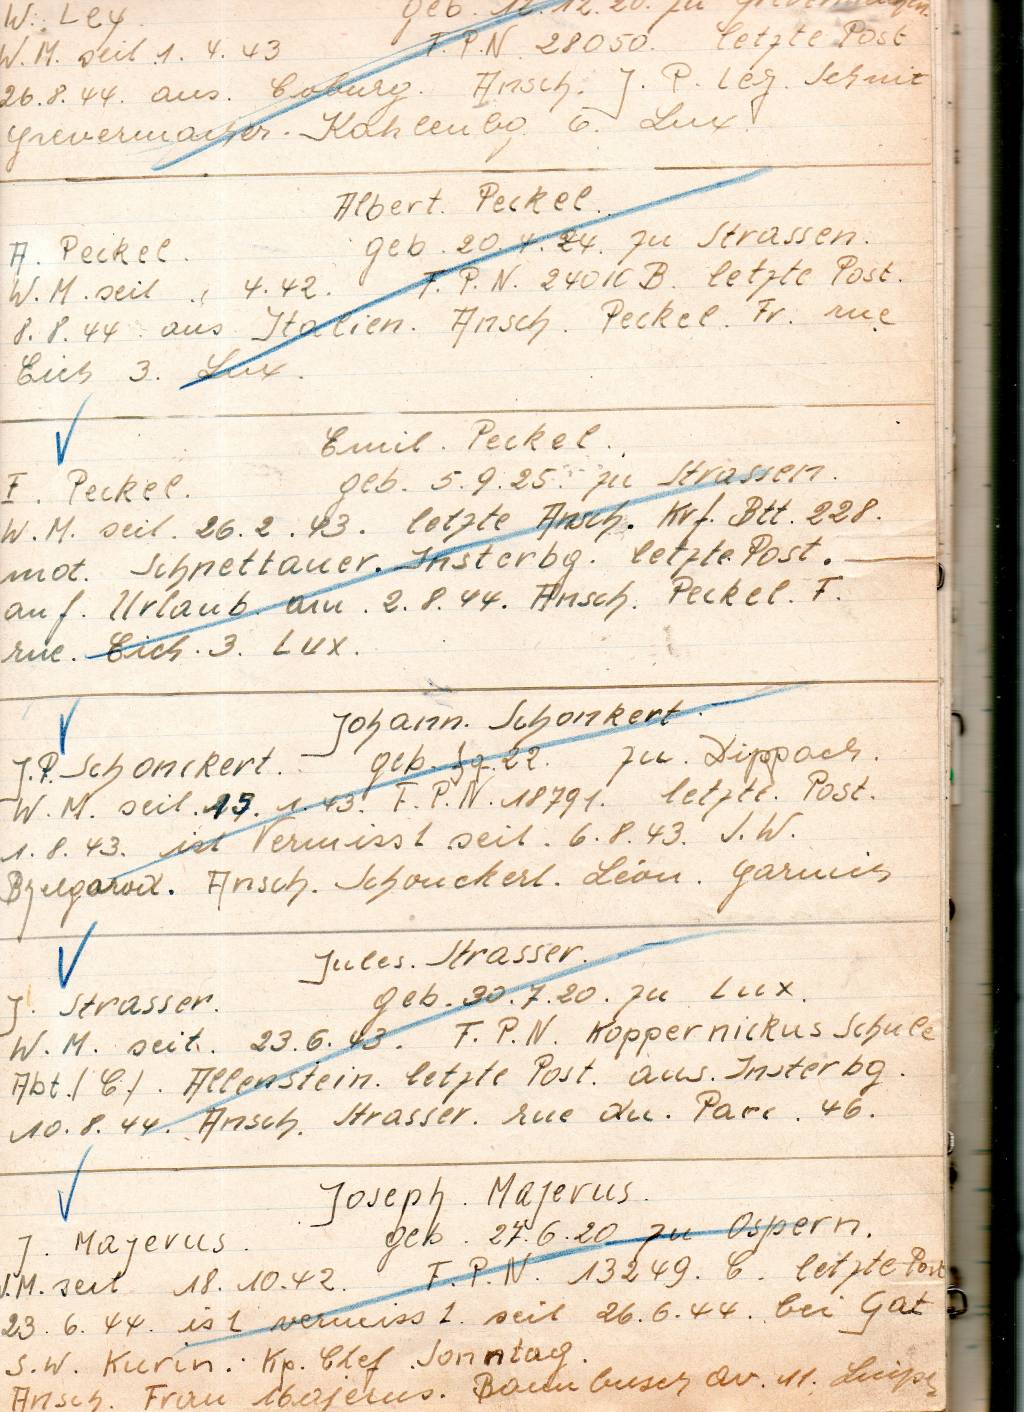 W. Ley geb. 12.12.20. zu Grevenmacher.
W.M. seit 1. 4. 43 F.P.N. 28050. letzte Post
26.8.44. aus. Coburg. Ansch. J. P. Ley. Schmit
Grevenmacher. Kahlenbg 6. Lux.
Albert. Peckel.
A. Peckel. geb. 20.4.24. zu Strassen.
W.M. seit 4.42. F.P.N. B. letzte Post.
8.8.44 aus Italien. Ansch. Peckel. Fr. rue
Eich 3. Lux.
Emil. Peckel.
E. Peckel. geb. 5.9.25. zu Strassen.
W.M. seit. 26.2.43. letzte Ansch. Krf. Btt. 228.
mot. Schnettauer. Insterbg. letzte Post.
auf. Urlaub. am. 2.8.44. Ansch. Peckel. F.
rue. Eich. 3. Lux.
Johann. Schonkert.
J.P. Schonckert. geb. 22. zu. Dippach.
W.M. seit. 15. 1. 43. F.P.N. 18791. letzte. Post.
1.8.43. ist Vermisst seit. 6.8.43. S.W.
Bjelgorod. Ansch. Schonckert. Léon. Garnich
Jules. Strasser.
J. Strasser. geb. 30.7.20. zu Lux.
W.M. seit. 23.6.43. F.P.N. Koppernickus Schule
Abt. (C). Allenstein. letzte Post. aus. Insterbg.
10.8.44. Ansch. Strasser. rue du. Parc. 46.
Joseph. Majerus.
J. Majerus. geb. 27.6.20 zu Ospern.
W.M. seit 18.10.42. F.P.N. 13249. C. letzte Post
23.6.44. ist vermisst. seit 26.6.44. bei Gat
S.W. Kurin. Kp. Chef Sonntag.
Ansch. Frau Majerus. Bambusch av. 11.